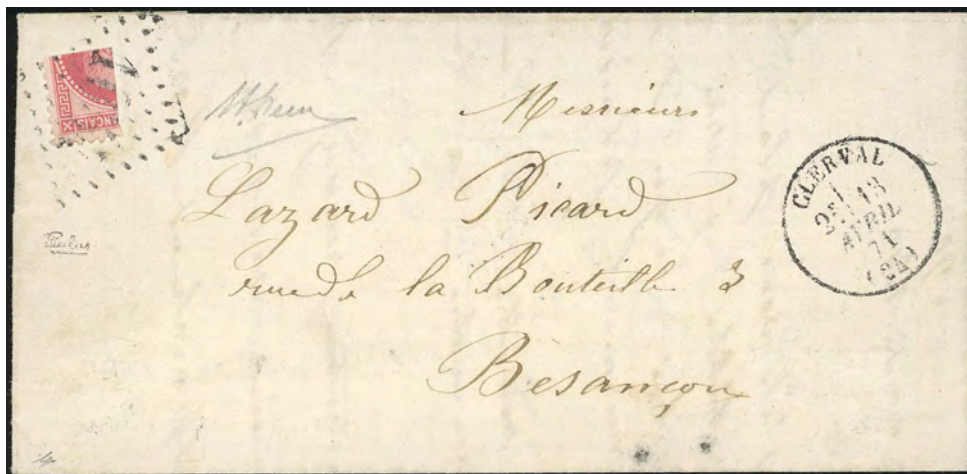 NÇAIS
Messieurs
Lazard Picard
rue de la Bouteille 3
Besançon
CLERVAL
13
AVRIL
71
(24)